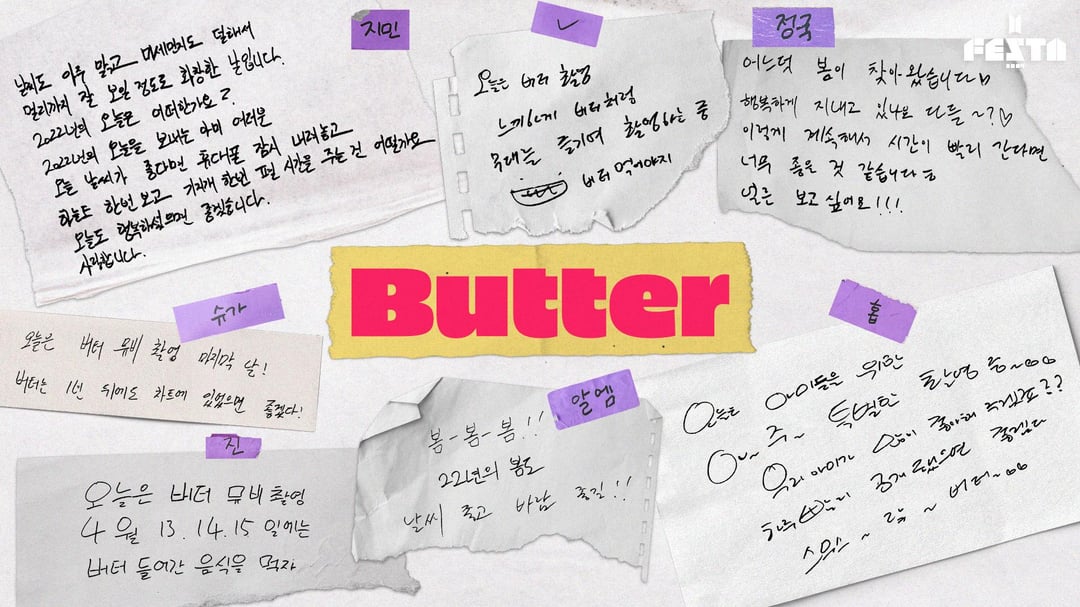 지민
날씨도 아주 맑고 미세먼지도 덜해서
멀리까지 잘 보일 정도로 화창한 날입니다.
2022년의 오늘은 어떠한가요?
2022년의 오늘을 보내는 아미 여러분
오늘 날씨가 좋다면 휴대폰 잠시 내려놓고
하늘도 한번 보고 기지개 한번 펼 시간을 주는 건 어떨까요
오늘도 행복하셨으면 좋겠습니다.
사랑합니다.
V
오늘은 버터 촬영
느끼하게 버터처럼
무대를 즐기며 촬영하는 중
버터 먹어야지
정국
어느덧 봄이 찾아왔습니다♡
행복하게 지내고 있나요 다들~?♡
이렇게 계속해서 시간이 빨리 간다면
너무 좋을 것 같습니다
얼른 보고 싶어요!!!
FESTA
Butter
슈가
오늘은 버터 뮤비 촬영 마지막 날!
버터는 1년 뒤에도 차트에 있었으면 좋겠다!
진
오늘은 버터 뮤비 촬영
4월 13.14.15 일에는
버터 들어간 음식을 먹자
알엠
봄-봄-봄!!
22년의 봄도
날씨 좋고 바람 좋길!!
홉
오늘은 아미들을 위한
아~주~ 특별한 촬영 중~
우리 아미가 많이 좋아해 주겠죠??
좋겠다
버터~
스무스~